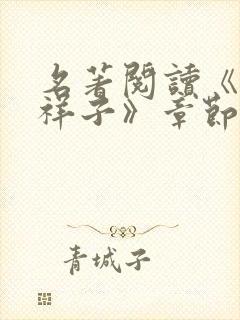 名著閱讀《
祥子》章節
青城子